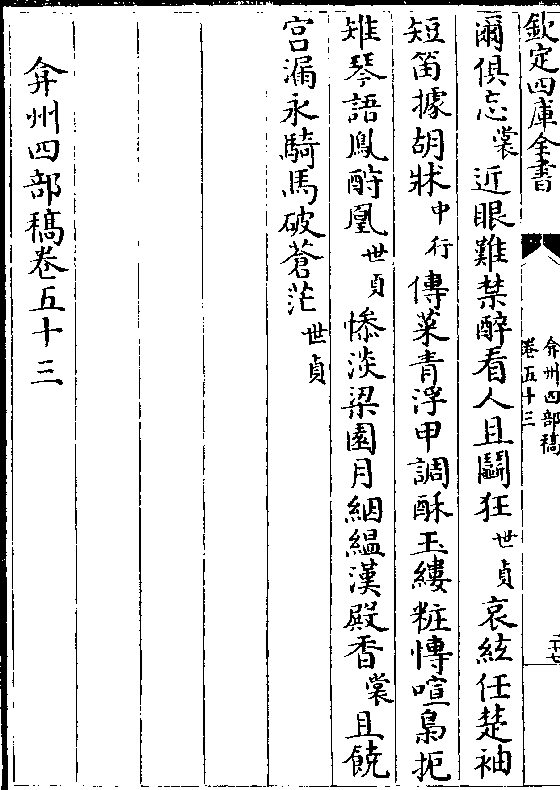 欽定四庫全書
弇州四部稿
卷五十三
二十七
爾俱忘裳近眼難禁醉看人且鬬狂世貞哀絃任楚袖
短笛據胡牀中行傳菜青浮甲調酥玉縷粧愽喧梟扼
雉琴語鳳酧凰世貞慘淡梁園月絪緼漢殿香裳且饒
宫漏永騎馬破蒼茫世貞
弇州四部稿卷五十三